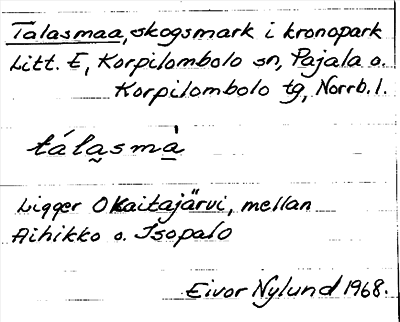 Talasmaa, skogsmark i kronopark
Litt. E, Korpilombolo sn, Pajala o.
Korpilombolo tg, Norrb. l.
tála̰smà̲
Ligger O Kaitajärvi, mellan
Aihikko o. Isopalo
Eivor Nylund 1968.